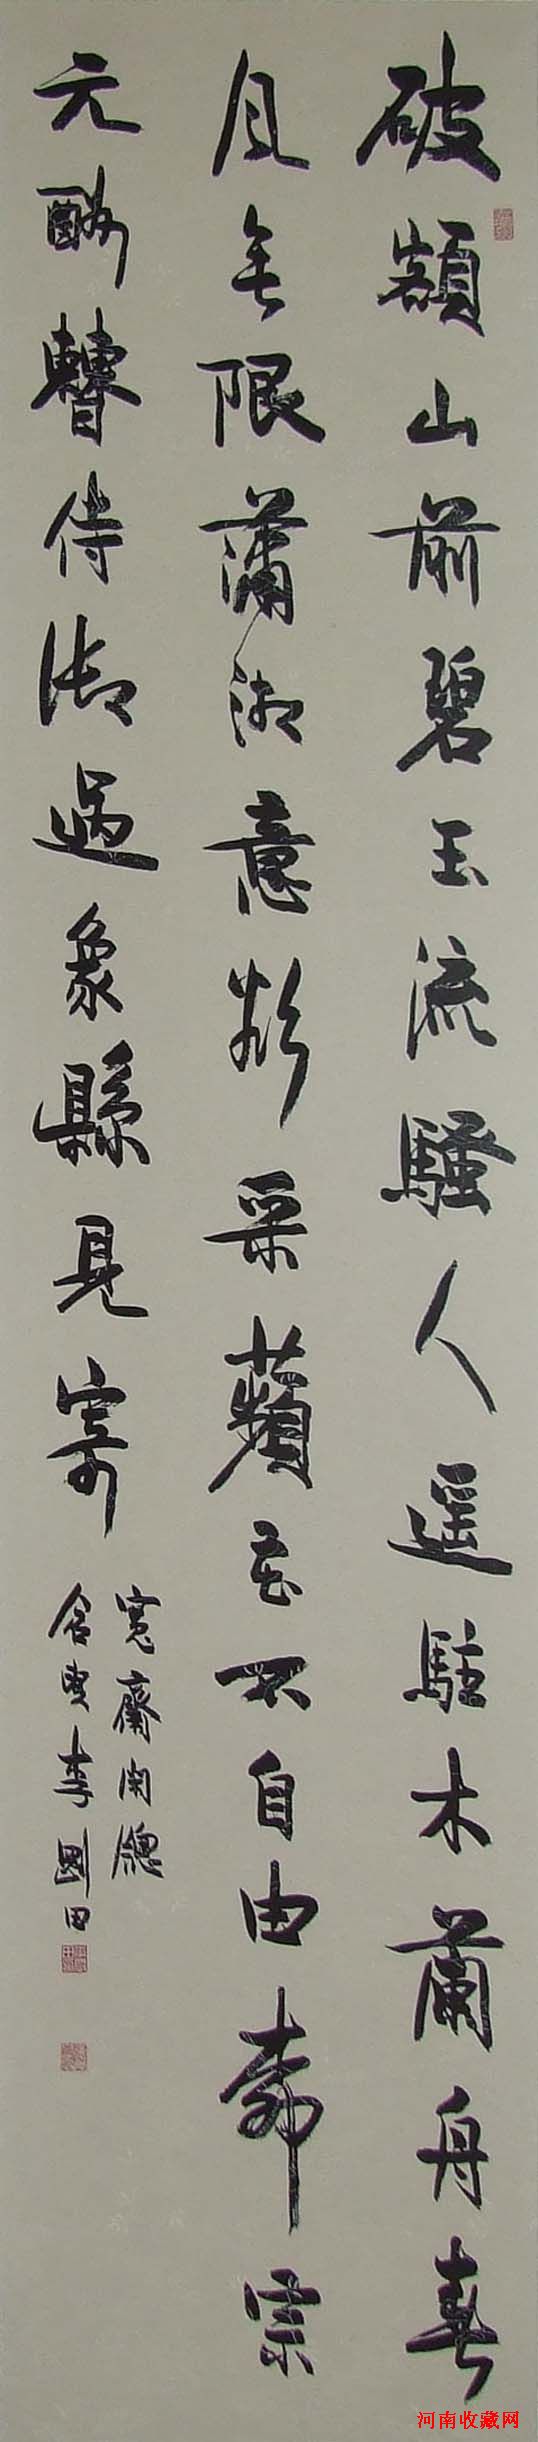 破額山前碧玉流騷人遥駐木蘭舟春
風無限瀟湘意欲采蘋花不自由柳宗
元酬曹侍御過象縣見寄
寬齋
李剛田
河南收藏网